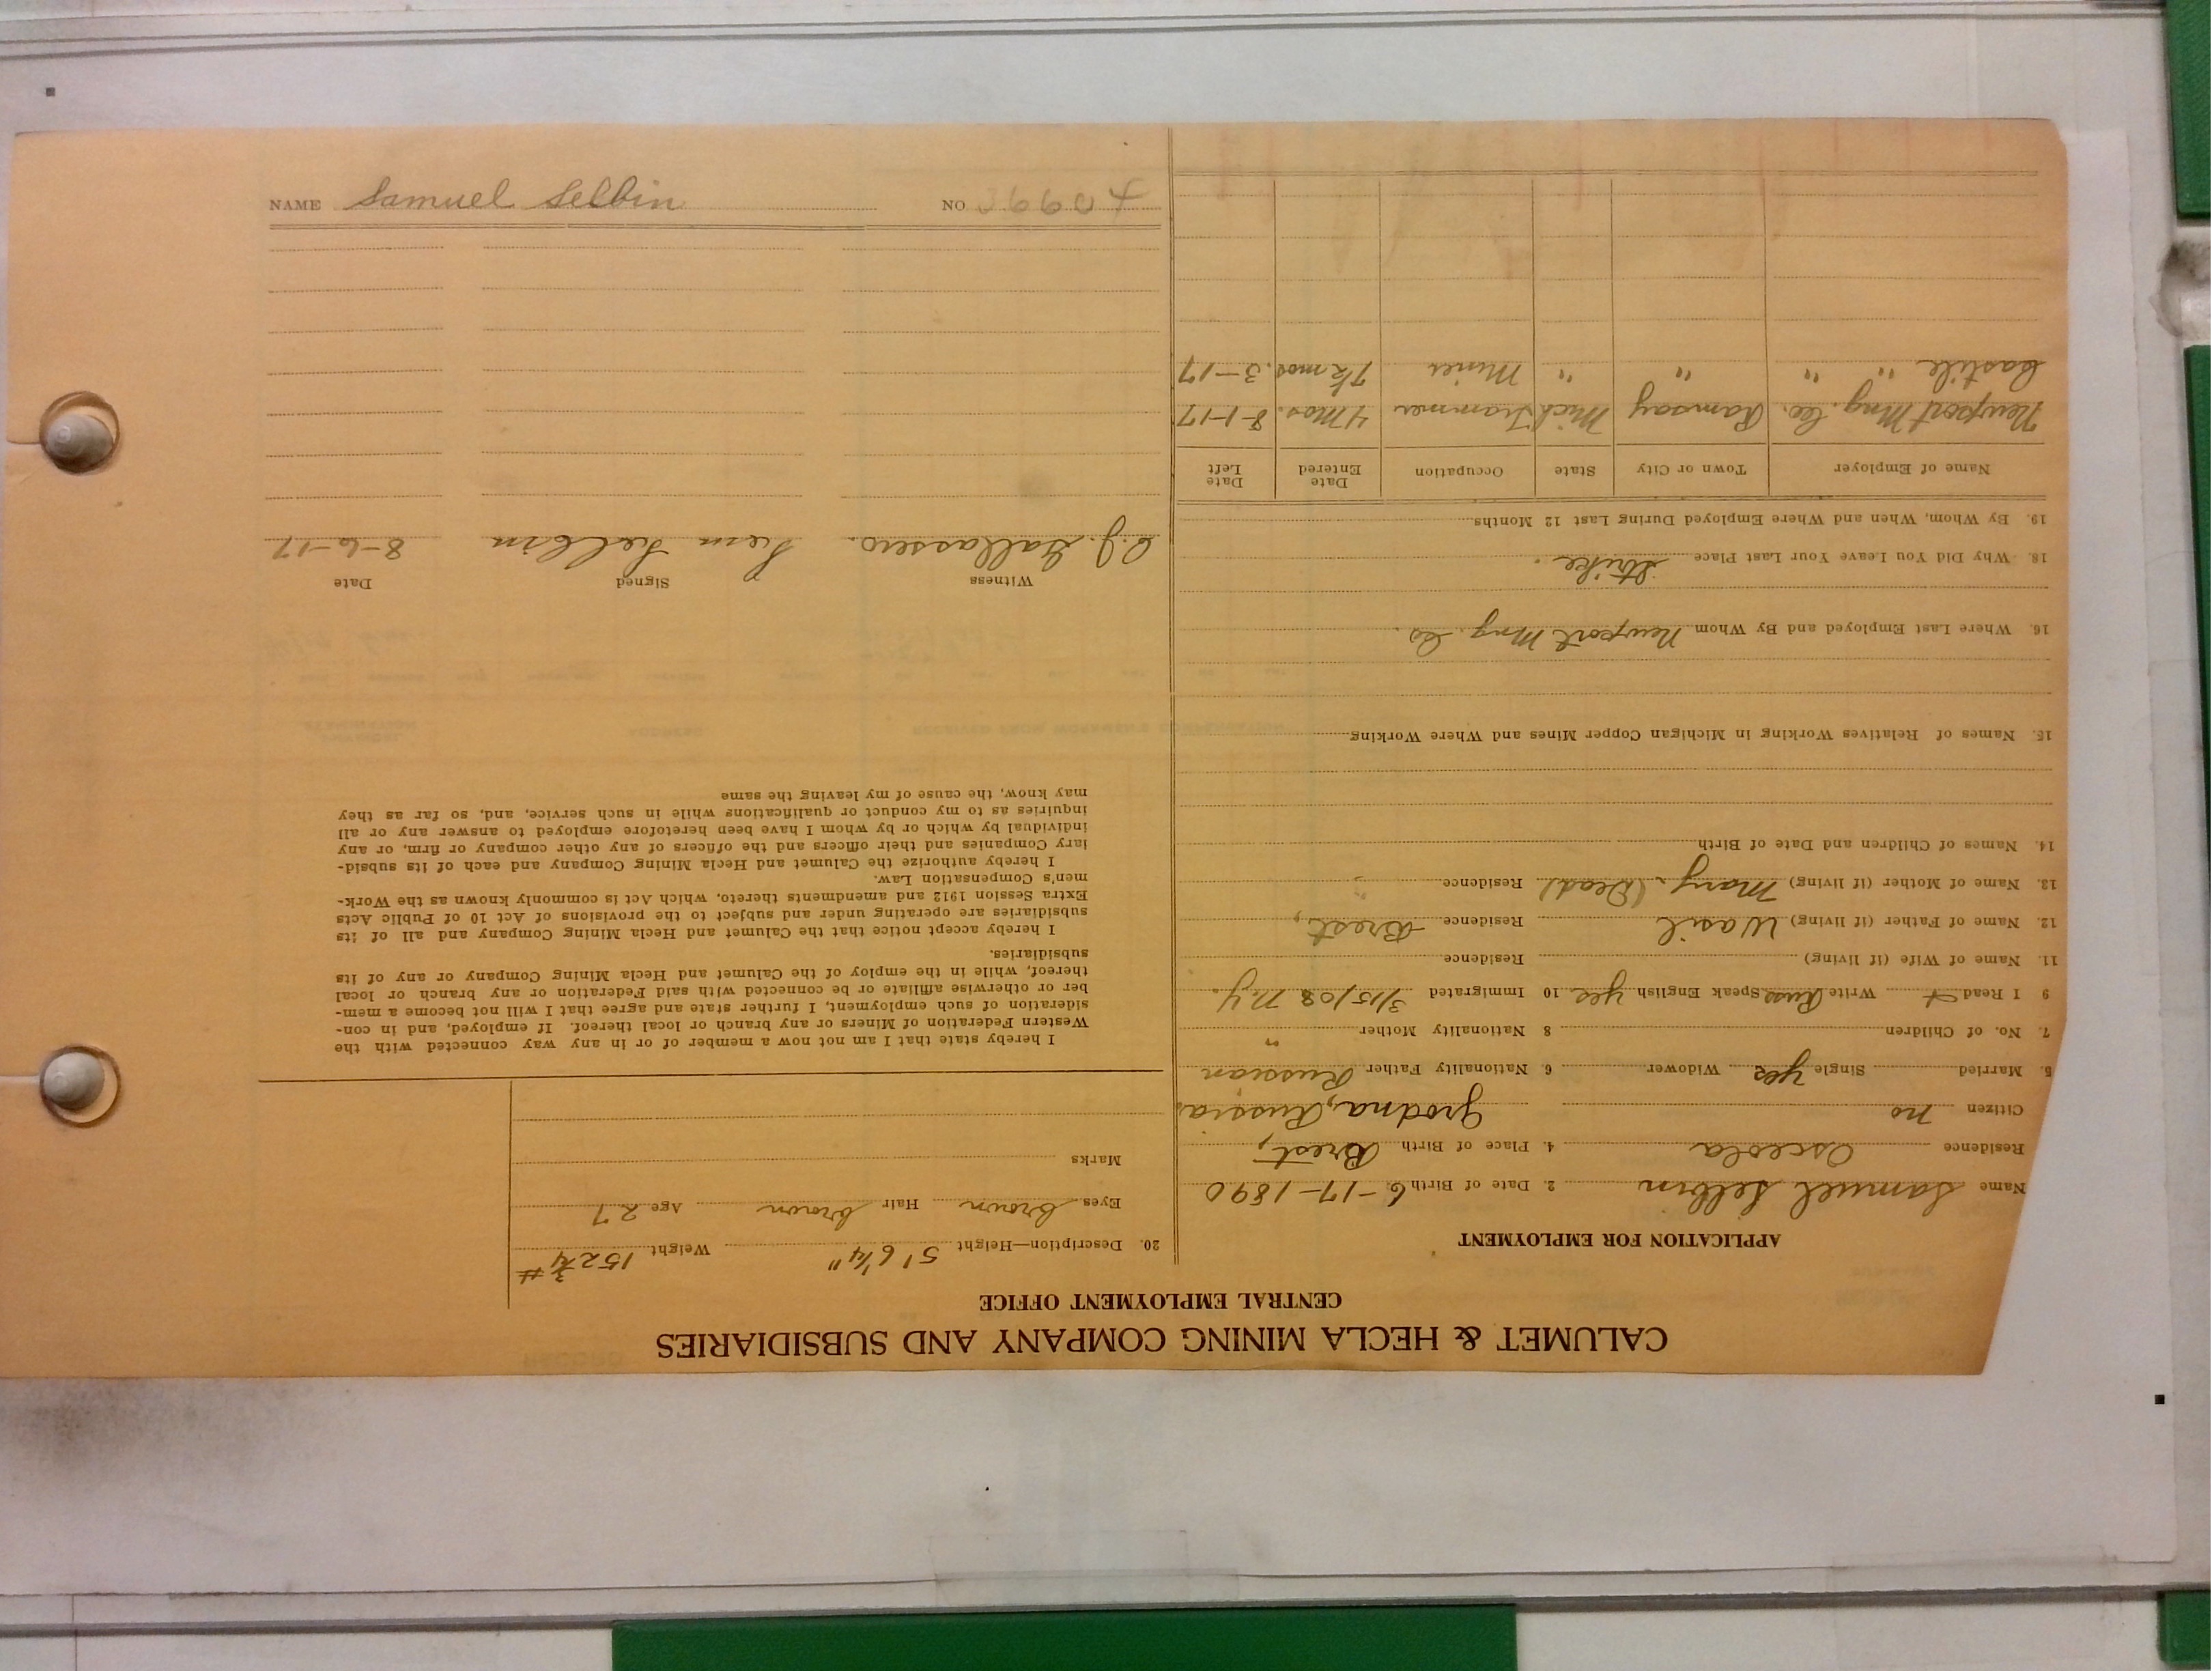 CALUMET & HECLA MINING COMPANY AND SUBSIDIARIES
CENTRAL EMPLOYMENT OFFICE
APPLICATION FOR EMPLOYMENT
Name Samuel Selbin 2. Date of Birth 6-17-1890
Residence Osceola 4. Place of Birth Brest,
Citizen no Grodna, Russia.
5. Married Single yes Widower 6. Nationality Father Russian
7. No. of Children 8 Nationality Mother "
9 I Read + Write Russ Speak English yes 10 Immigrated 3/15/08 N.Y.
11. Name of Wife (if living) Residence
12. Name of Father (if living) Wasil Residence Brest,
13. Name of Mother (if living) Mary- (Dead) Residence "
14. Names of Children and Date of Birth
15. Names of Relatives Working in Michigan Copper Mines and Where Working
16. Where Last Employed and By Whom Newport Mng. Co.
18. Why Did You Leave Your Last Place Strike.
19. By Whom, When and Where Employed During Last 12 Months
Name of Employer Town or City State Occupation Date Entered Date Left
Newport Mng. Co. Ramsay Mich Trammer 4 Mos. 8-1-17
Castile " " " " Miner 7½ mos. 3-17
20. Description—Height 5' 6¼" Weight 152¾ #
Eyes brown Hair brown Age 27
Marks
I hereby state that I am not now a member of or in any way connected with the
Western Federation of Miners or any branch or local thereof. If employed, and in con-
sideration of such employment, I further state and agree that I will not become a mem-
ber or otherwise affiliate or be connected with said Federation or any branch or local
thereof, while in the employ of the Calumet and Hecla Mining Company or any of its
subsidiaries.
I hereby accept notice that the Calumet and Hecla Mining Company and all of its
subsidiaries are operating under and subject to the provisions of Act 10 of Public Acts
Extra Session 1912 and amendments thereto, which Act is commonly known as the Work-
men's Compensation Law.
I hereby authorize the Calumet and Hecla Mining Company and each of its subsid-
iary Companies and their officers and the officers of any other company or firm, or any
individual by which or by whom I have been heretofore employed to answer any or all
inquiries as to my conduct or qualifications while in such service, and, so far as they
may know, the cause of my leaving the same
Witness Signed Date
Sem Selbin 8-6-17
NAME Samuel Selbin NO